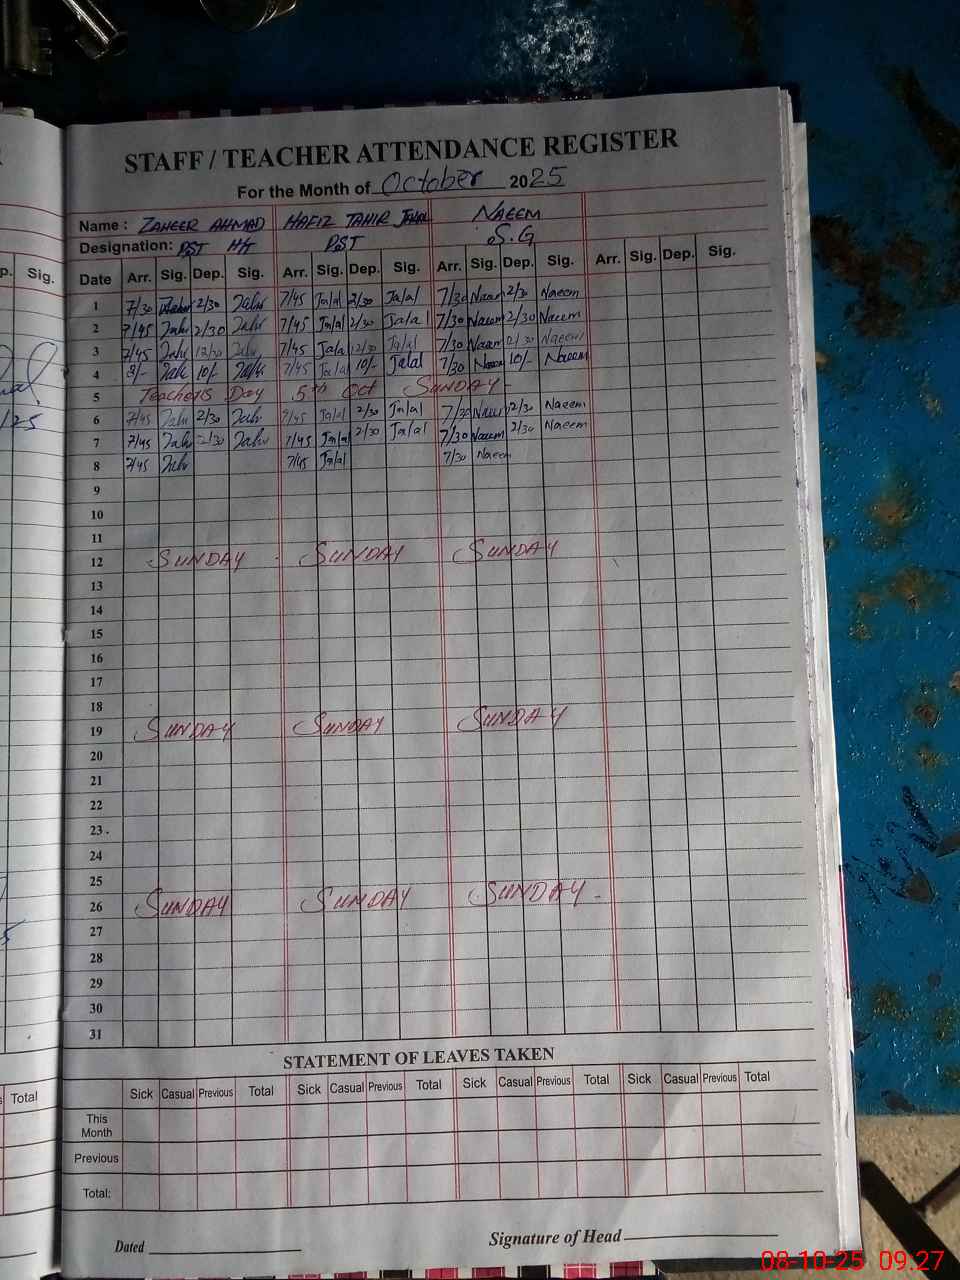 STAFF / TEACHER ATTENDANCE REGISTER
For the Month of October 2025
Name : ZAHEER AHMAD HAFIZ TAHIR JALAL NAEEM
Designation: PST H/T PST S.G
p. Sig. Date Arr. Sig. Dep. Sig. Arr. Sig. Dep. Sig. Arr. Sig. Dep. Sig. Arr. Sig. Dep. Sig.
1 7/30 2/30 7/45 Jalal 2/30 Jalal 7/30 Naeem 2/30 Naeem
2 7/45 2/30 7/45 Jalal 2/30 Jalal 7/30 Naeem 2/30 Naeem
3 7/45 12/30 7/45 Jalal 12/30 Jalal 7/30 Naeem 12/30 Naeem
4 8/- 10/- 7/45 Jalal 10/- Jalal 7/30 Naeem 10/- Naeem
5 Teachers Day 5th Oct SUNDAY -
6 7/45 2/30 7/45 Jalal 2/30 Jalal 7/30 Naeem 2/30 Naeem
7 7/45 2/30 7/45 Jalal 2/30 Jalal 7/30 Naeem 2/30 Naeem
8 7/45 7/45 Jalal 7/30 Naeem
9
10
11
12 SUNDAY SUNDAY SUNDAY
13
14
15
16
17
18
19 SUNDAY SUNDAY SUNDAY
20
21
22
23
24
25
26 SUNDAY SUNDAY SUNDAY -
27
28
29
30
31
STATEMENT OF LEAVES TAKEN
Total Sick Casual Previous Total Sick Casual Previous Total Sick Casual Previous Total Sick Casual Previous Total
This
Month
Previous
Total:
Dated Signature of Head
08-10-25 09:27